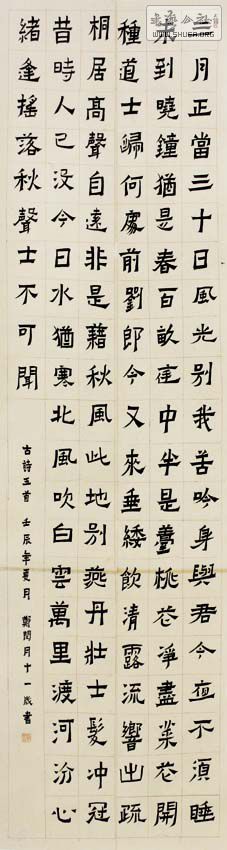 三月正當三十日風光別我苦吟身與君今夜不須睡
未到曉鐘猶是春百畝庭中半是薹桃花淨盡菜花開
種道士歸何處前劉郎今又來垂緌飲清露流響出疏
桐居高聲自遠非是藉秋風此地別燕丹壯士髮冲冠
昔時人已沒今日水猶寒北風吹白雲萬里渡河汾心
緒逢搖落秋聲士不可聞
古詩五首 壬辰年夏月 鄭閔月十一歲書